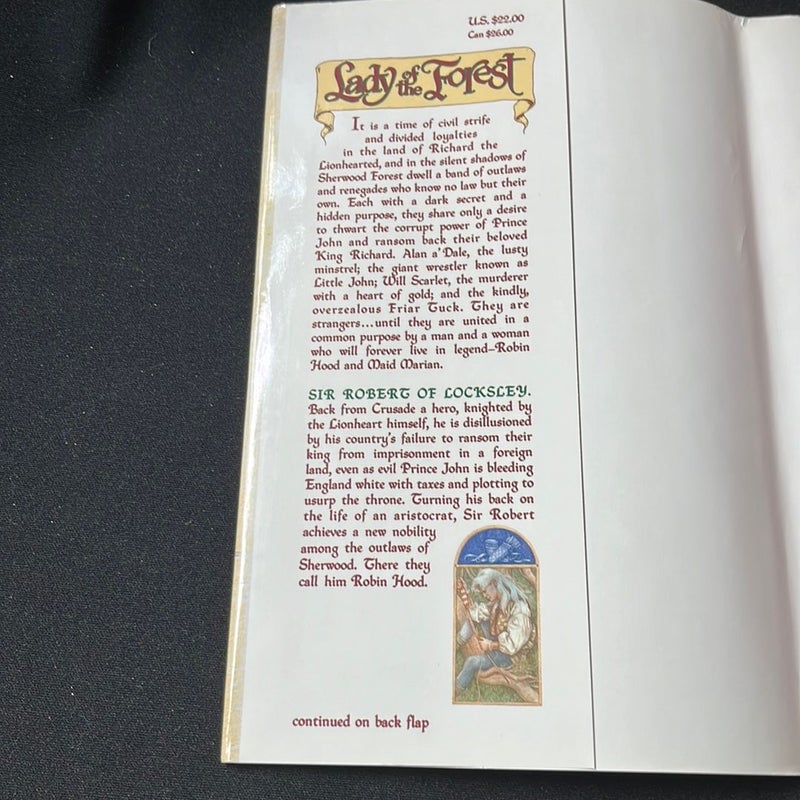 U.S. $22.00
Can $26.00
Lady of the Forest
It is a time of civil strife
and divided loyalties
in the land of Richard the
Lionhearted, and in the silent shadows of
Sherwood Forest dwell a band of outlaws
and renegades who know no law but their
own. Each with a dark secret and a
hidden purpose, they share only a desire
to thwart the corrupt power of Prince
John and ransom back their beloved
King Richard. Alan a'Dale, the lusty
minstrel; the giant wrestler known as
Little John; Will Scarlet, the murderer
with a heart of gold; and the kindly,
overzealous Friar Tuck. They are
strangers...until they are united in a
common purpose by a man and a woman
who will forever live in legend–Robin
Hood and Maid Marian.
SIR ROBERT OF LOCKSLEY.
Back from Crusade a hero, knighted by
the Lionheart himself, he is disillusioned
by his country's failure to ransom their
king from imprisonment in a foreign
land, even as evil Prince John is bleeding
England white with taxes and plotting to
usurp the throne. Turning his back on
the life of an aristocrat, Sir Robert
achieves a new nobility
among the outlaws of
Sherwood. There they
call him Robin Hood.
continued on back flap